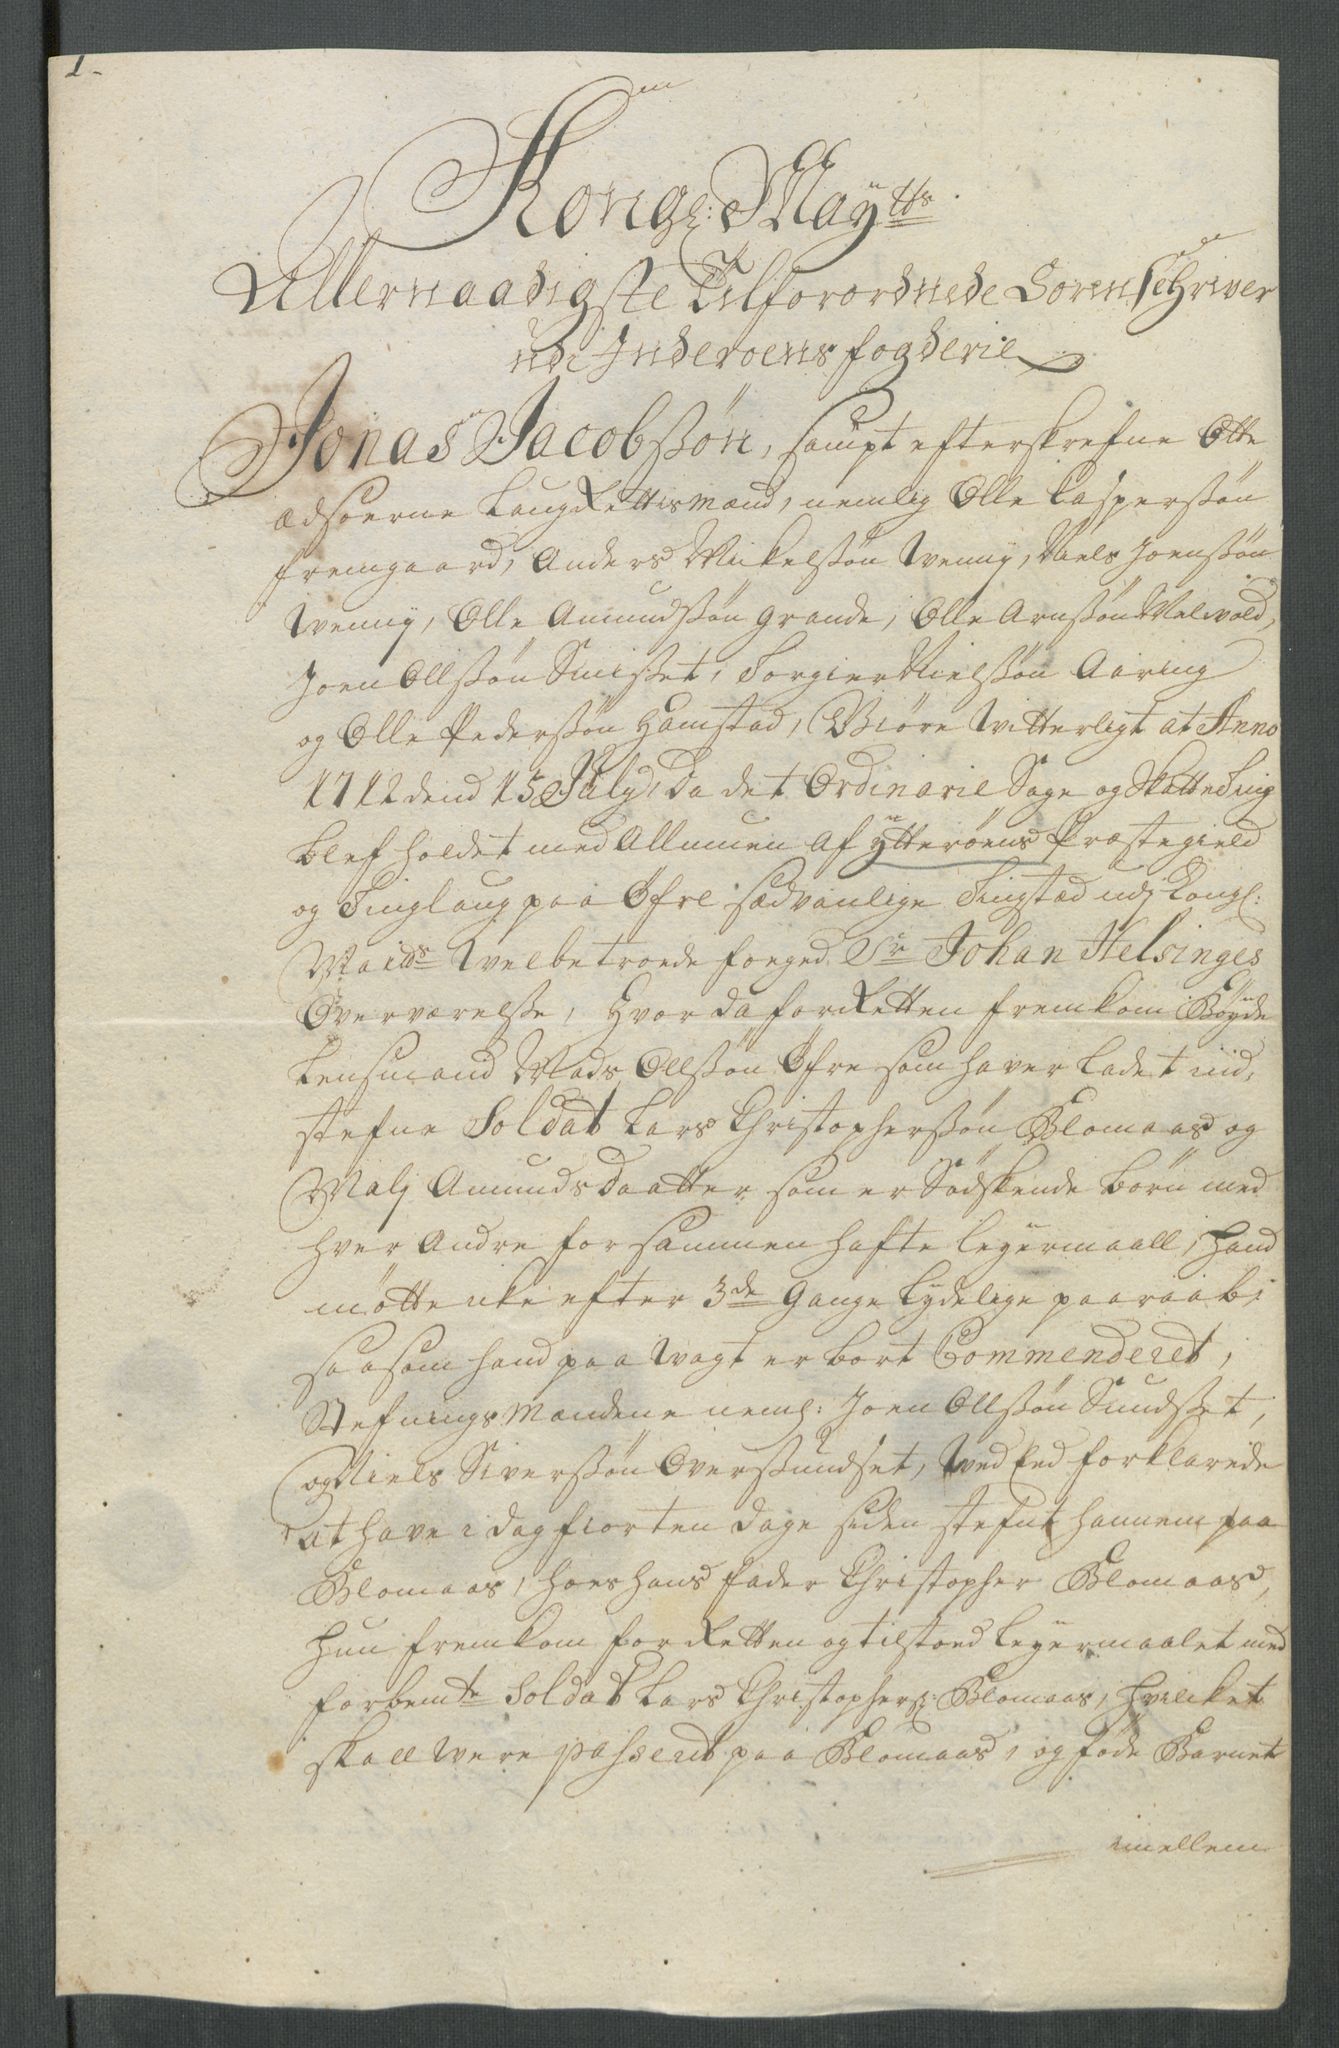 1-
Kongl: Maytts
Allernaadigste Tilforordnede Sorenschriver
udi Inderoens fogderie
Jonas Jacobssön, sampt efterskrefne Otte
ædsoerne Laug Rettismænd, nemlig Olle Casperssön
fremgaard, Anders Mickelssön Wennj, Niels Joenssön
Wennj, Olle Amundssön Grande, Olle Arnssön Malvold,
Joen Ollssön Smisset, Torgier Nielssön Aaring
og Olle Pederssön Hamstad, Giöre Witterligt at Anno
1712 dend 15 July, Da det Ordinarie Sage og Skatte Ting
blef holdet med Allmuen af Ytteröens Præstegield
og Tinglaug paa Öfre sædvanlige Tingstæd udj Kongl:
Maits Welbetroede foeged Sr Johan Helsinges
Overværelsse, Hvor da for Retten fremkom Böyde
Lensmand Mads Ollssön Öfre som haver ladet ind,
stefne Soldat Lars Christopherssön Blomaas og
Malj Amundsdaatter som er Södskende börn med
hver Andre for sammen hafte leyermaall, Hand
mötte icke efter 3de Gange lydelige paaraab,
saasom hand paa Wagt er bort Commenderet,
Stefnings Mændene neml: Joen Ollssön Sundset,
og Niels Siverssön Oversundset, Wed Eed forklarede
at have i dag fiorten dage siden stefnt hannem paa
Blomaas, hoes hans fader Christopher Blomaas,
Hun fremkom for Retten og tilstoed leyermaalet med
forbemte Soldat Lars Christophers: Blomaas, Hvilcket
skall Were passeret paa Blomaas, og föde Barnet
imellem